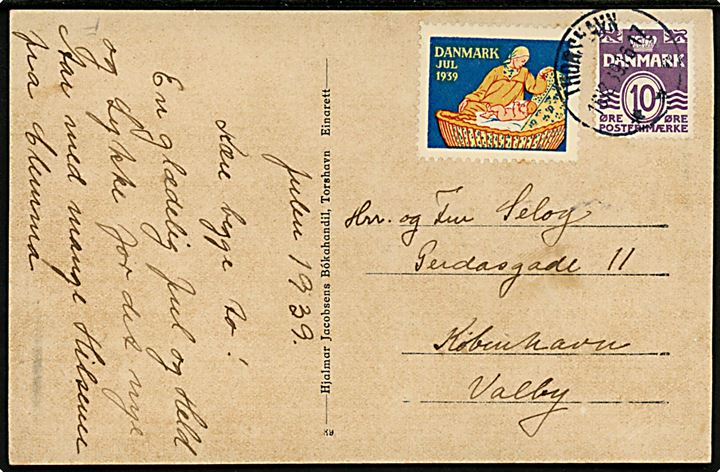 Julen 1939.
Kære bygge to!
En glædelig Jul og Held
og Lykke for det nye
Aar med mange Hilsener
fra Clemma
Hjalmar Jacobsens Bókahandil, Torshavn Einarett
K9
DANMARK
JUL
1939
THORSHAVN
DANMARK
10
ØRE ØRE
POSTFRIMÆRKE
Hrr. og Fru Seloy
Gerdasgade 11
København
Valby